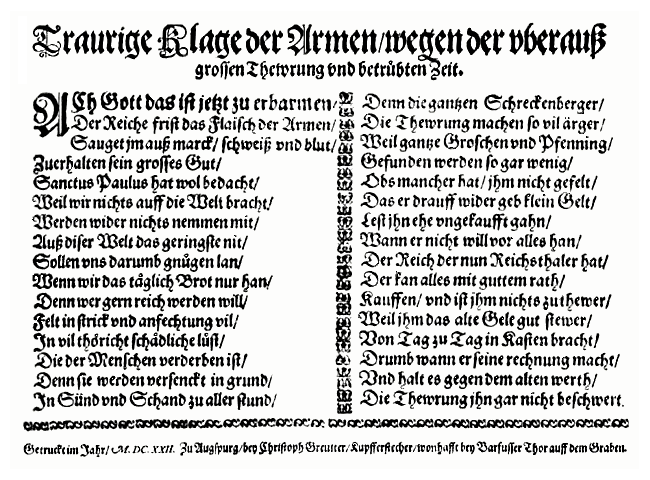 Traurige Klage der Armen/wegen der vberauß
grossen Thewrung vnd betrübten Zeit.
ACh Gott das ist jetzt zu erbarmen/
Der Reiche frist das Flaisch der Armen/
Sauget jm auß marck/ schweiß vnd blut/
Zuerhalten sein grosses Gut/
Sanctus Paulus hat wol bedacht/
Weil wir nichts auff die Welt bracht/
Werden wider nichts nemmen mit/
Auß diser Welt das geringste nit/
Sollen vns darumb gnügen lan/
Wenn wir das täglich Brot nur han/
Denn wer gern reich werden will/
Felt in strick vnd anfechtung vil/
In vil thöricht schädliche lüst/
Die der Menschen verderben ist/
Denn sie werden versenckt in grund/
In Sünd vnd Schand zu aller stund/
Denn die gantzen Schreckenberger/
Die Thewrung machen so vil ärger/
Weil gantze Groschen vnd Pfenning/
Gefunden werden so gar wenig/
Obs mancher hat/ jhm nicht gefelt/
Das er drauff wider geb klein Gelt/
Lest jhn ehe vngekaufft gahn/
Wann er nicht will vor alles han/
Der Reich der nun Reichsthaler hat/
Der kan alles mit guttem rath/
Kauffen/ vnd ist jhm nichts zu thewer/
Weil jhm das alte Gelt gut stewer/
Von Tag zu Tag in Kasten bracht/
Drumb wann er seine rechnung macht/
Vnd halt es gegen dem alten werth/
Die Thewrung jhn gar nicht beschwert.
Getruckt im Jahr/ M. DC. XXII. Zu Augspurg/ bey Christoph Greutter/ Kupfferstecher/ wonhafft bey Barfusser Thor auff dem Graben.